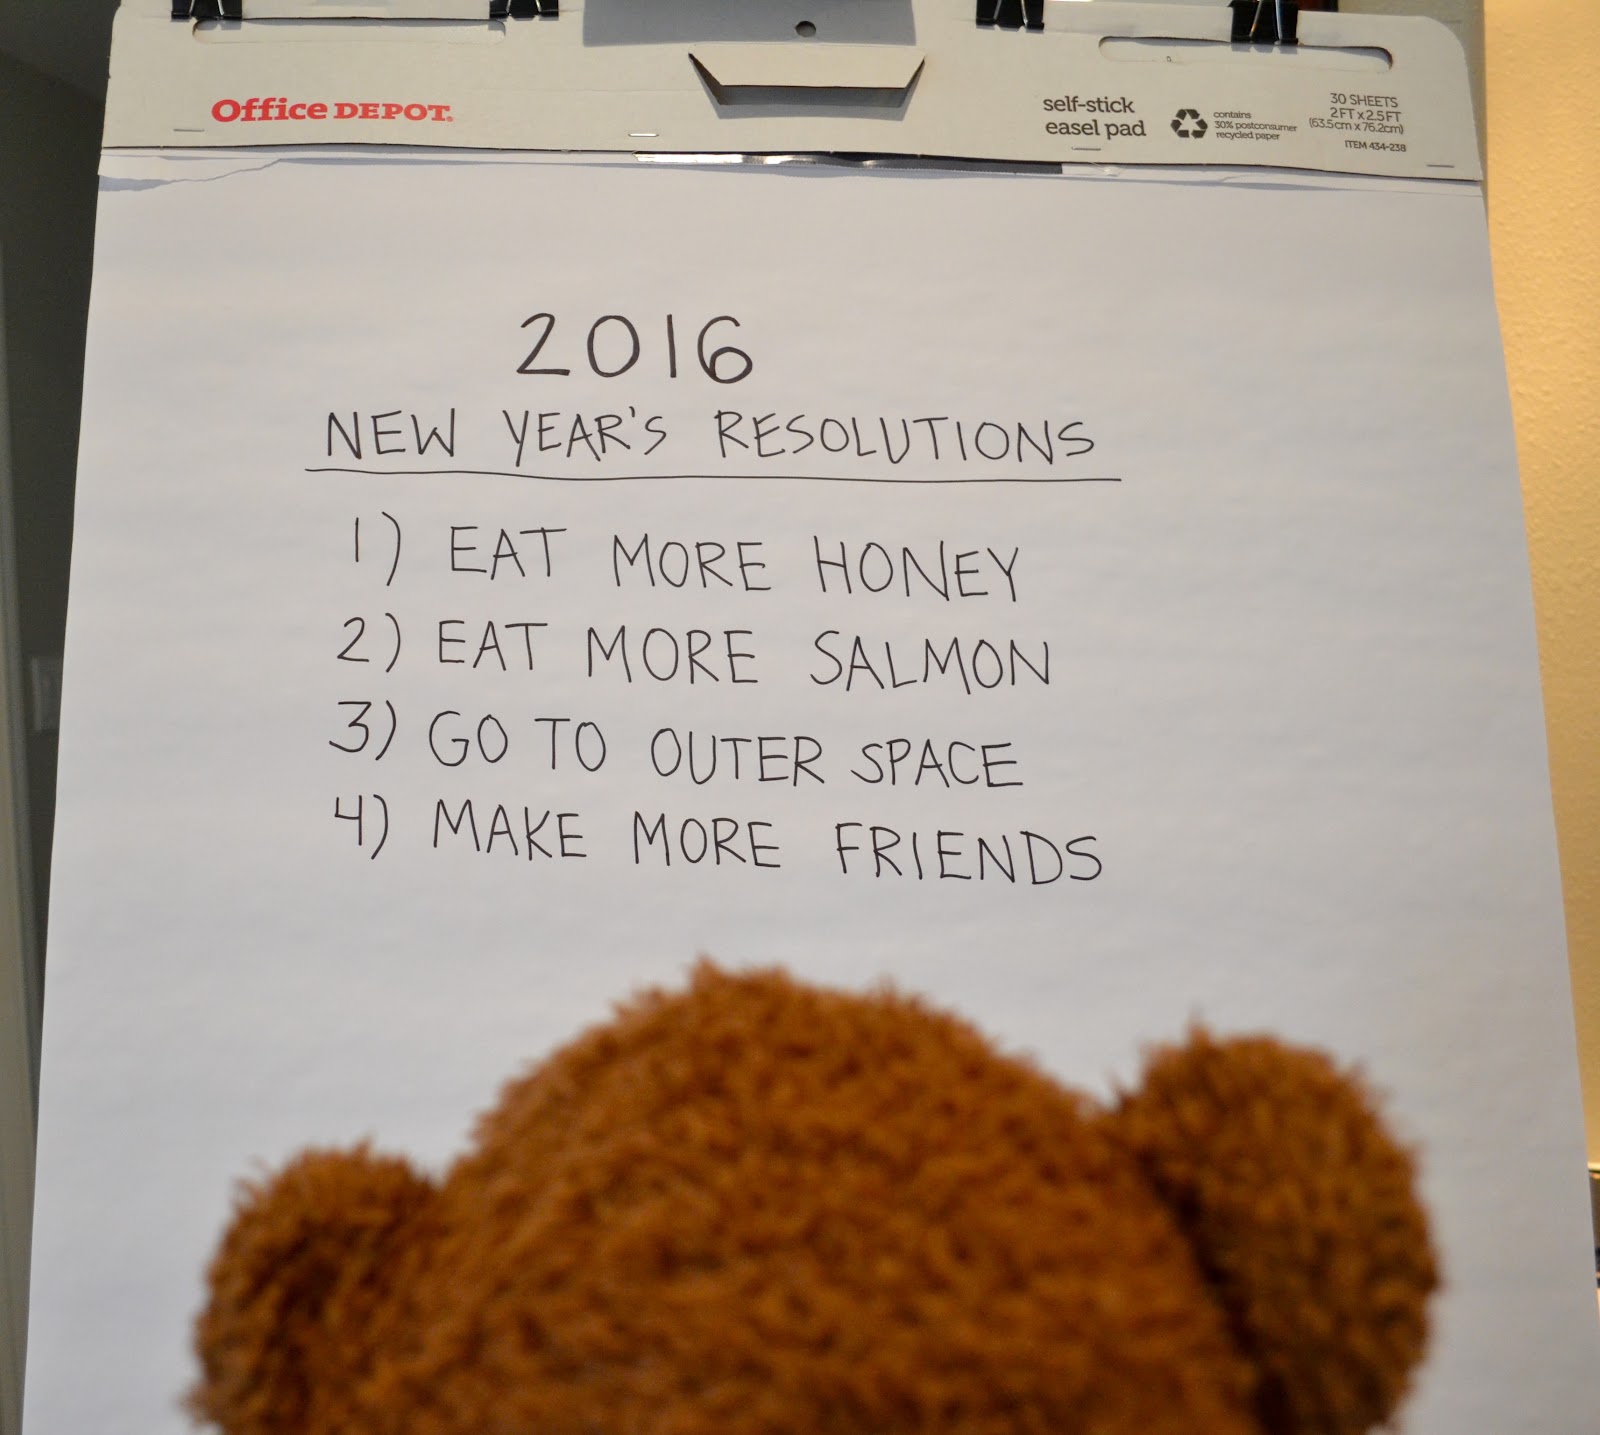 Office DEPOT.
self-stick
easel pad
contains
30% postconsumer
recycled paper
30 SHEETS
2FT x 2.5FT
(63.5cm x 76.2cm)
ITEM 434-238
2016
NEW YEAR'S RESOLUTIONS
1) EAT MORE HONEY
2) EAT MORE SALMON
3) GO TO OUTER SPACE
4) MAKE MORE FRIENDS